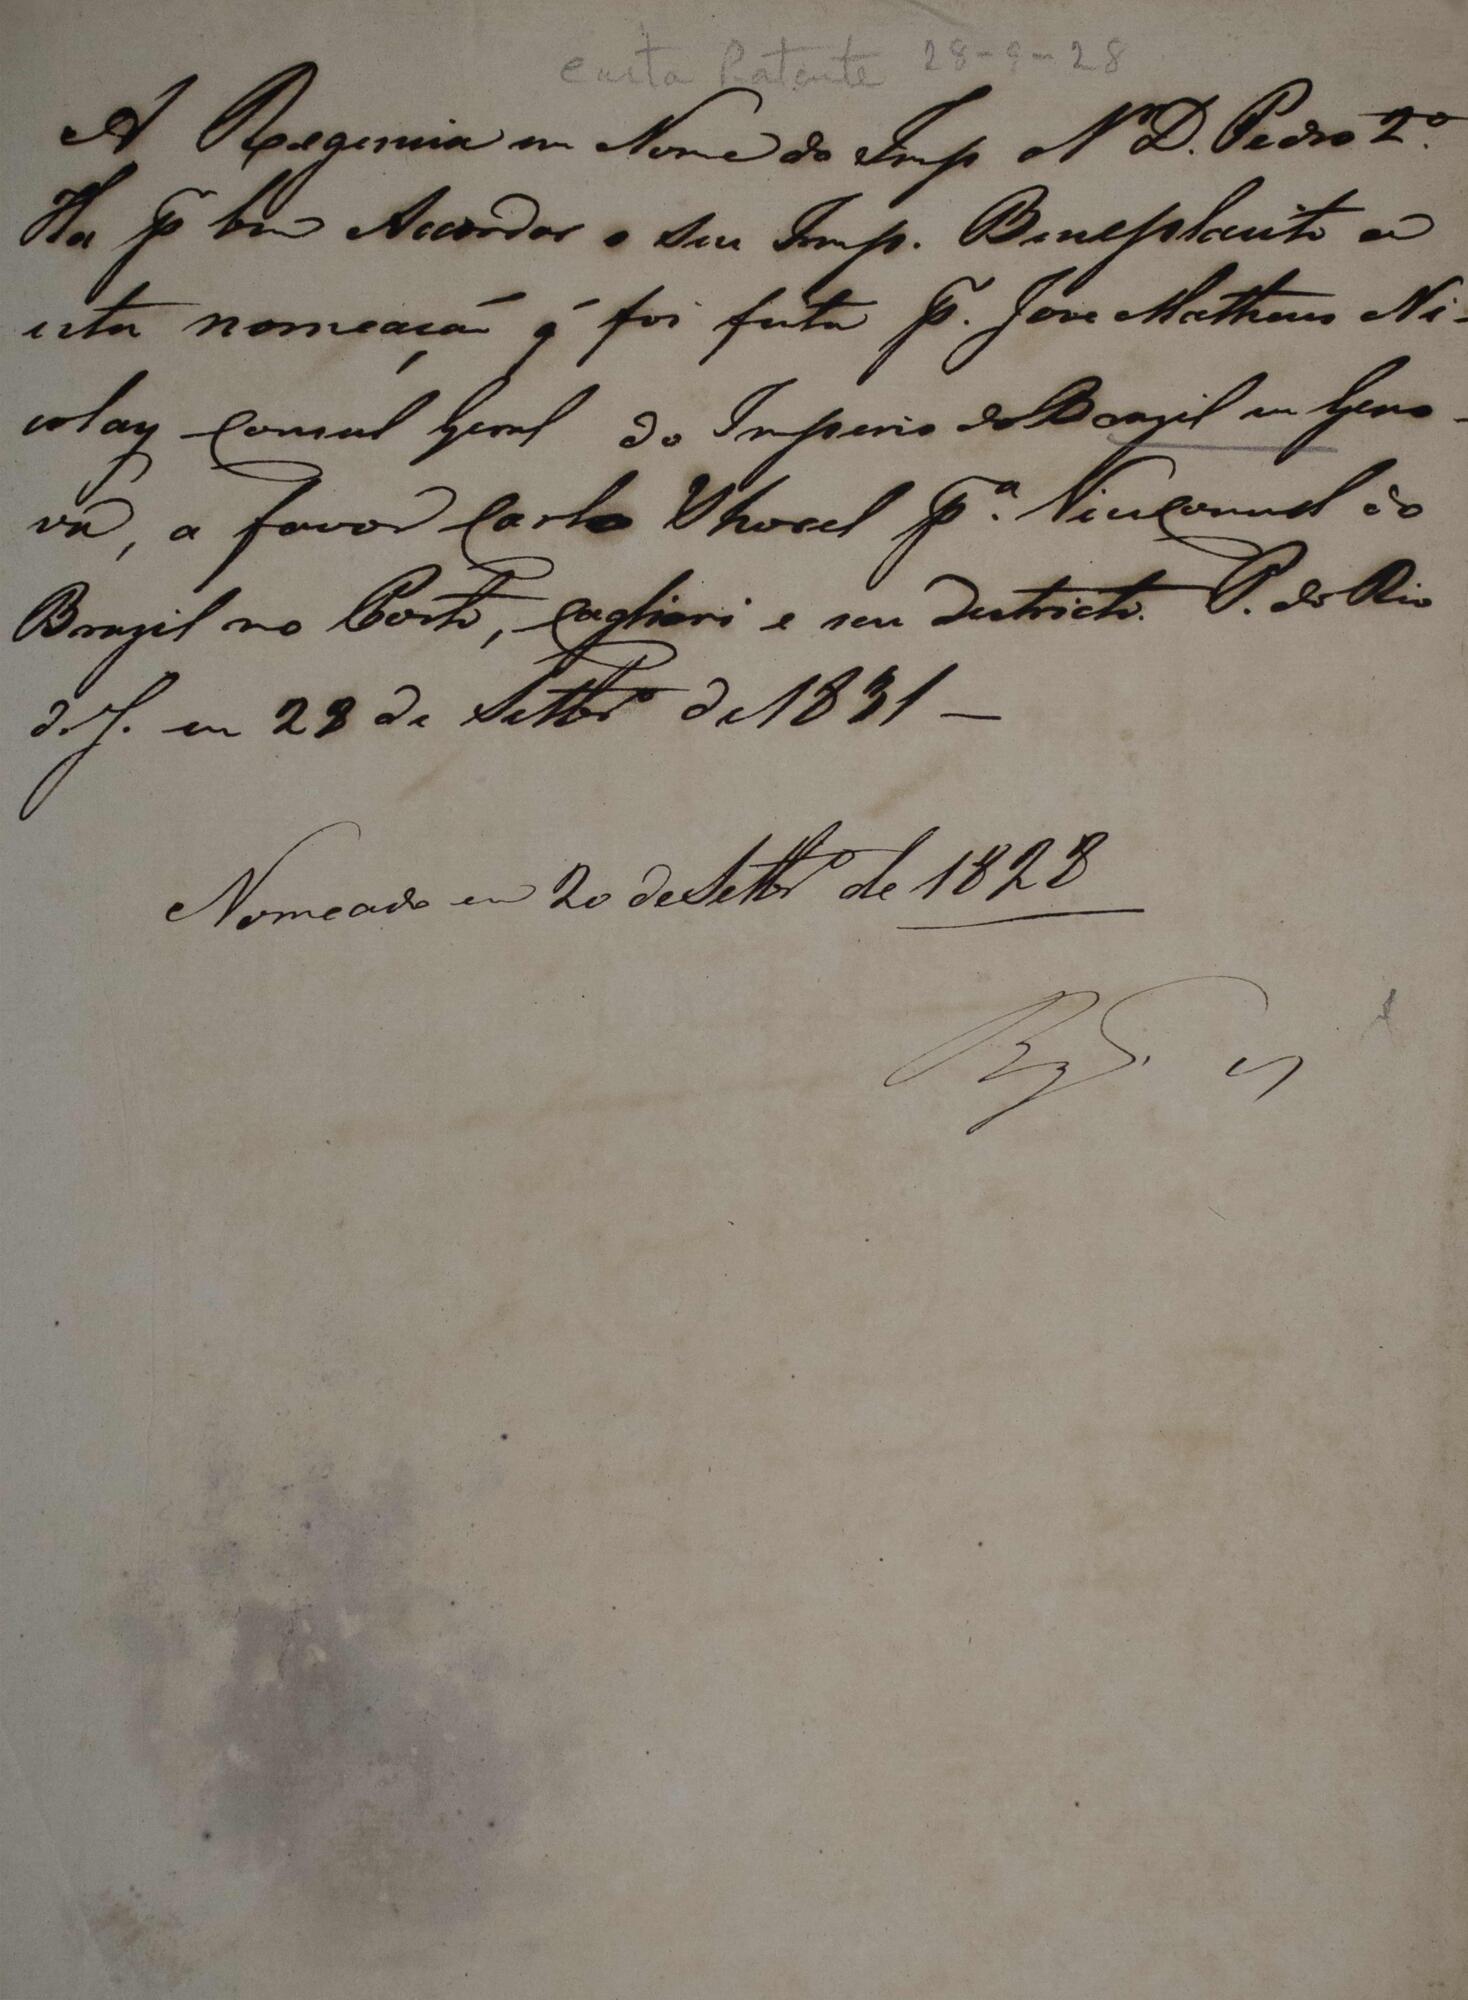 Carta Patente 28-9-28
A Regencia em Nome do Imp Nr D. Pedro 2º
Ha pr bem Accordar o seu Imp. Beneplacito a
esta nomeação q̃ foi feita p. Jose Matheus Ni-
colay Consul Geral do Imperio do Brazil em Geno-
va, a favor Carlo Thorel pª. ViceConsul do
Brazil no Porto, Cagliari e seu destricto. P. do Rio
de J. em 28 de Settbrº de 1831 —
Nomeado em 20 de Settbrº de 1828